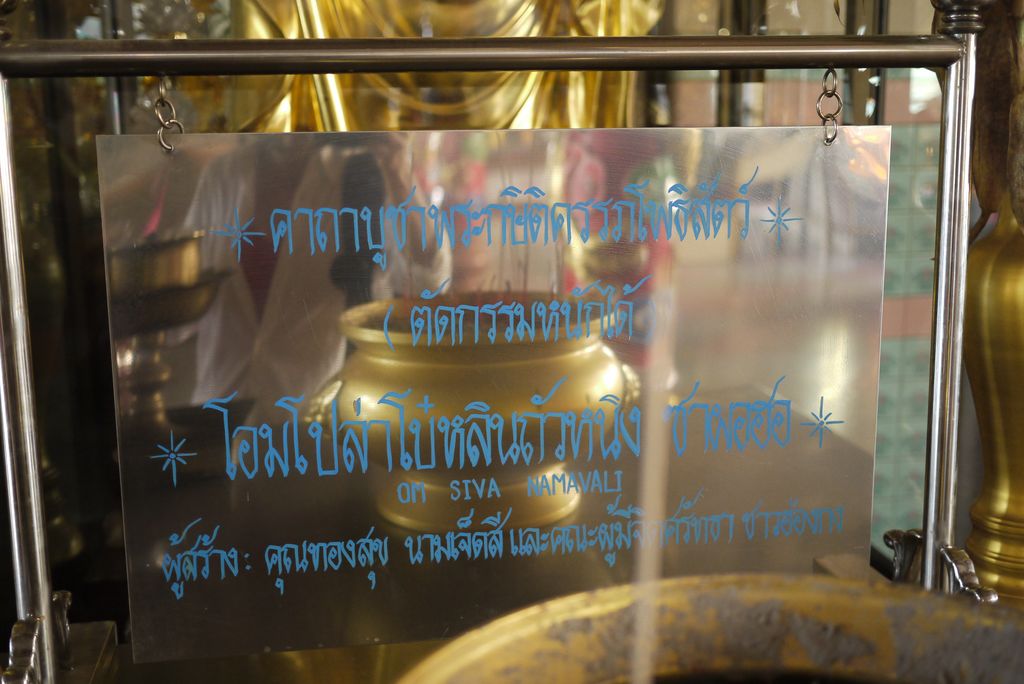 คาถาบูชาพระกษิติครรภโพธิสัตว์
( ตัดกรรมหนักได้ )
โอมโปล่าโป๋หลินถัวหนิง ซาผอฮอ
OM SIVA NAMAVALI
ผู้สร้าง : คุณทองสุข นามเจ็ดสี และคณะผู้มีจิตศรัทธา ชาวอ่างทอง